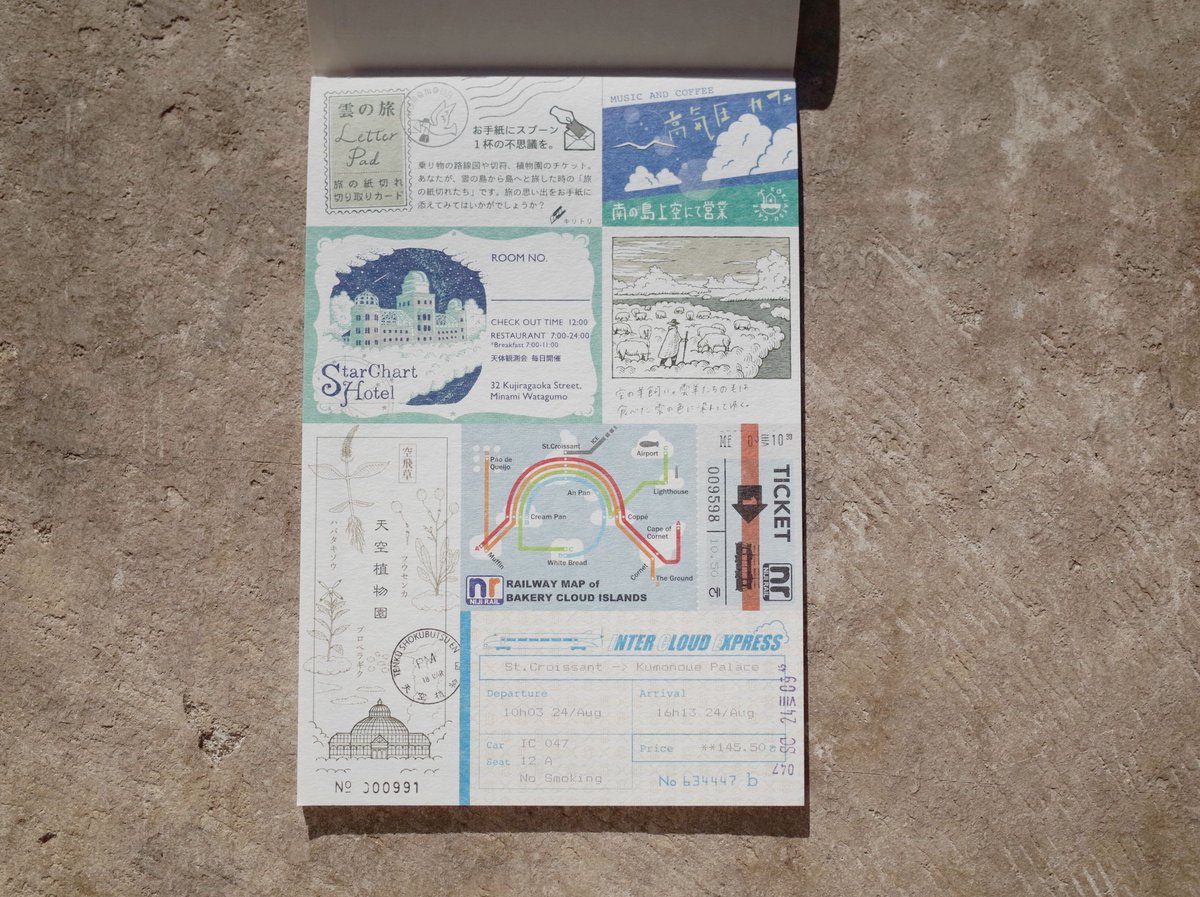 雲の旅
Letter
Pad
旅の紙切れ
切り取りカード
お手紙にスプーン
1杯の不思議を。
乗り物の路線図や切符、植物園のチケット。
あなたが、雲の島から島へと旅した時の「旅
の紙切れたち」です。旅の思い出をお手紙に
添えてみてはいかがでしょうか?
キリトリ
MUSIC AND COFFEE
高気圧 カフェ
南の島上空にて営業
StarChart
Hotel
ROOM NO.
CHECK OUT TIME 12:00
RESTAURANT 7:00-24:00
*Breakfast 7:00-11:00
天体観測会 毎日開催
32 Kujiragaoka Street,
Minami Watagumo
空の羊飼い。雲羊たちの毛は
食べた雲の色に染まってゆく。
空飛草
ハバタキソウ
天空植物園
フウセンカ
プロペラギク
TENKU SHOKUBUTSU EN
PM
天空植
Nº 000991
Pão de
Queijo
St.Croissant
ICE
Airport
An Pan
Lighthouse
Cream Pan
Coppé
Cape of
Cornet
Muffin
White Bread
Cornet
The Ground
nr
NIJI RAIL
RAILWAY MAP of
BAKERY CLOUD ISLANDS
TICKET
1
009598
10.50
nr
NIJI RAIL
INTER CLOUD EXPRESS
St.Croissant -> Kumonoue Palace
Departure
10h03 24/Aug
Arrival
16h13 24/Aug
Car IC 047
Seat 12 A
No Smoking
Price **145.50
No 634447 b
047